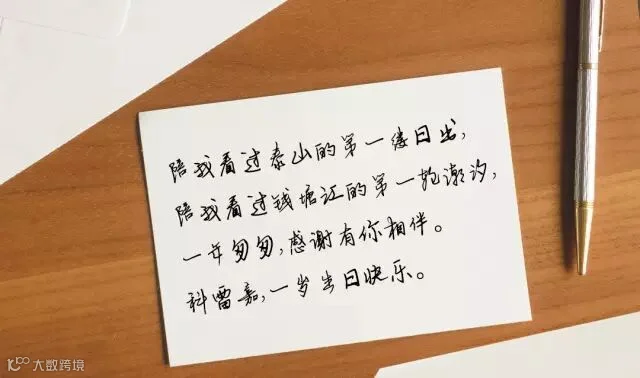 陪我看过泰山的第一缕日出，
陪我看过钱塘江的第一轮潮汐，
一年匆匆，感谢有你相伴。
科雷嘉，一岁生日快乐。
大数跨境